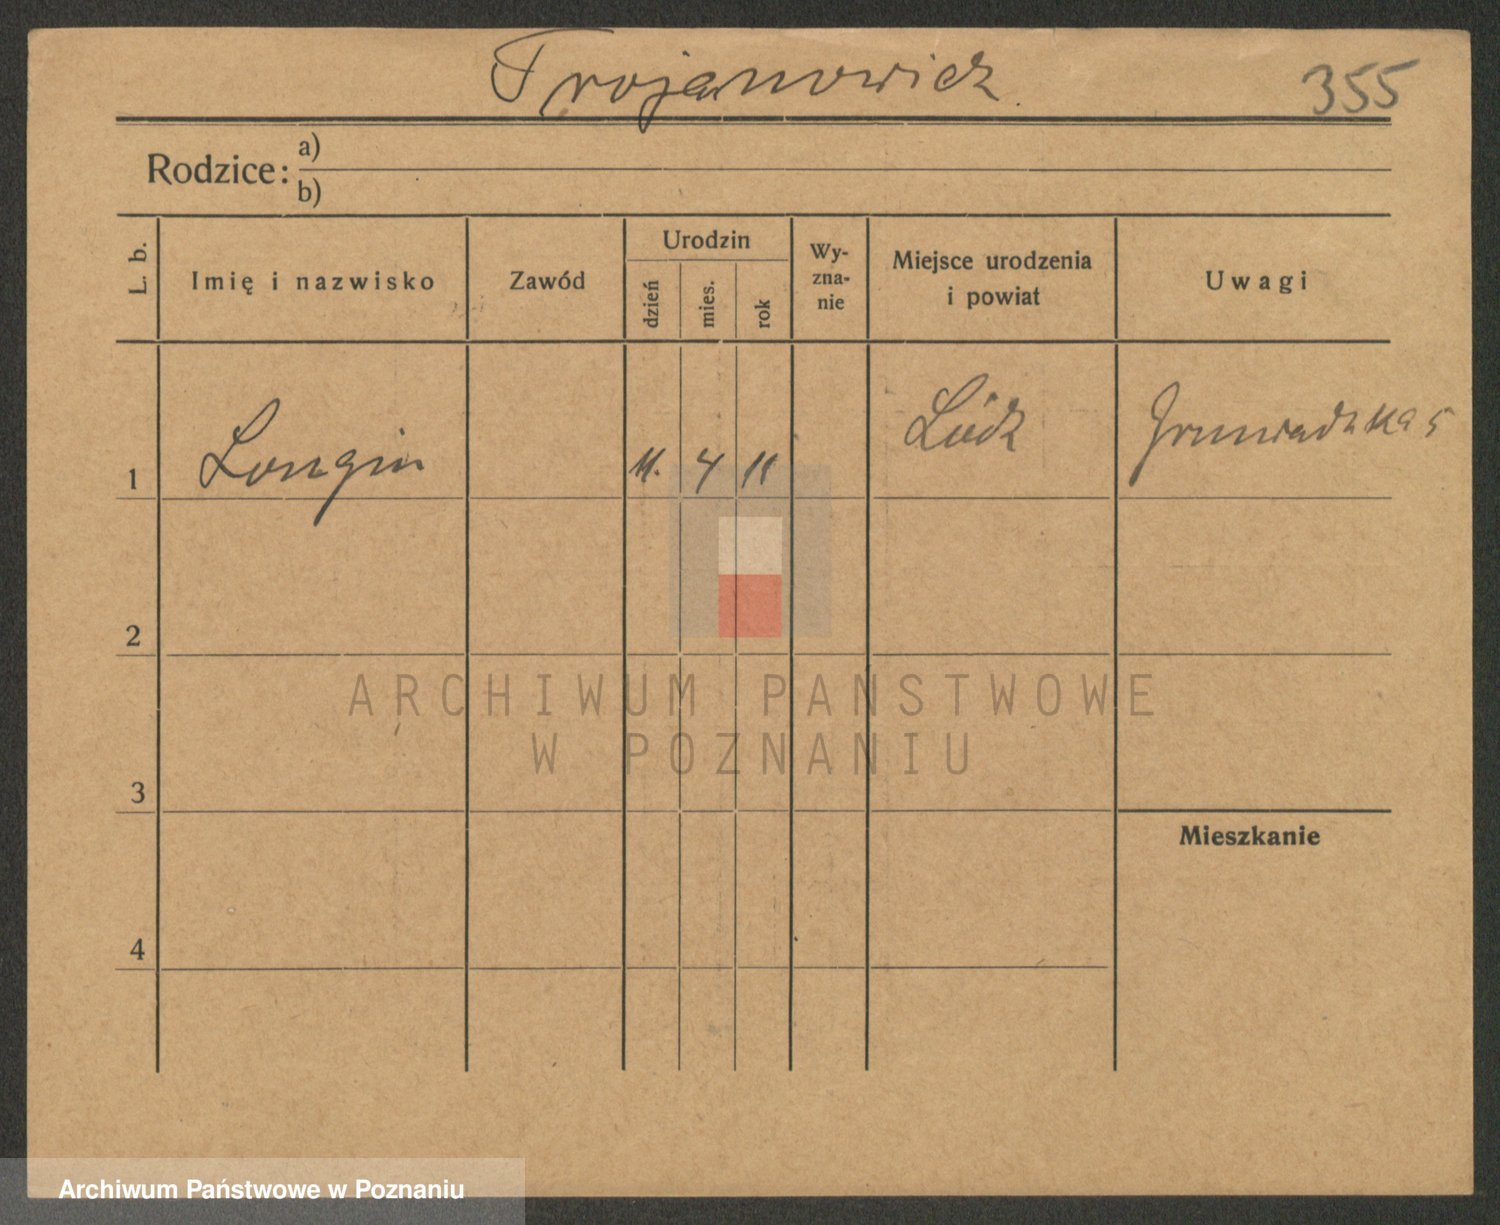 Trojanowicz
355
Rodzice: a)
b)
L. b.
Imię i nazwisko
Zawód
Urodzin
dzień
mies.
rok
Wy-
zna-
nie
Miejsce urodzenia
i powiat
Uwagi
1 Longin 11. 4 11 Łódz
2
3
4
Mieszkanie
ARCHIWUM PAŃSTWOWE
W POZNANIU
Archiwum Państwowe w Poznaniu